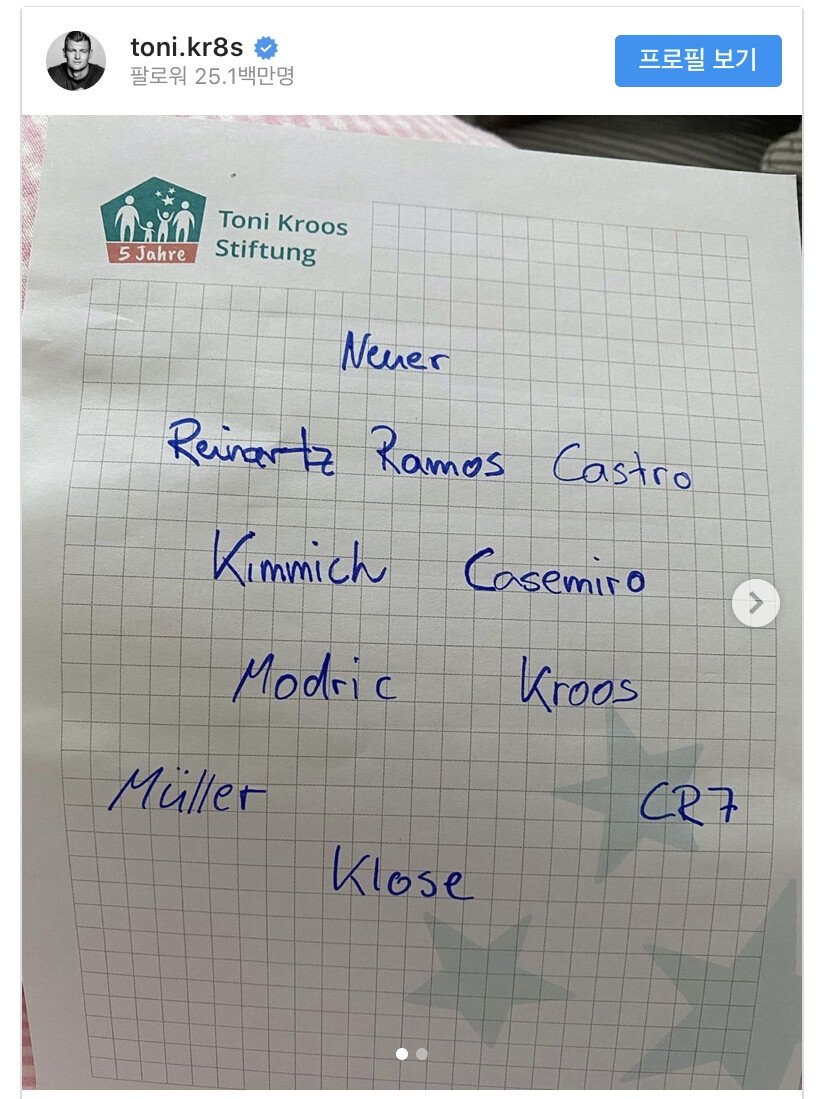 toni.kr8s
팔로워 25.1백만명
프로필 보기
Toni Kroos
Stiftung
5 Jahre
Neuer
Reinartz Ramos Castro
Kimmich Casemiro
Modric Kroos
Müller CR7
Klose